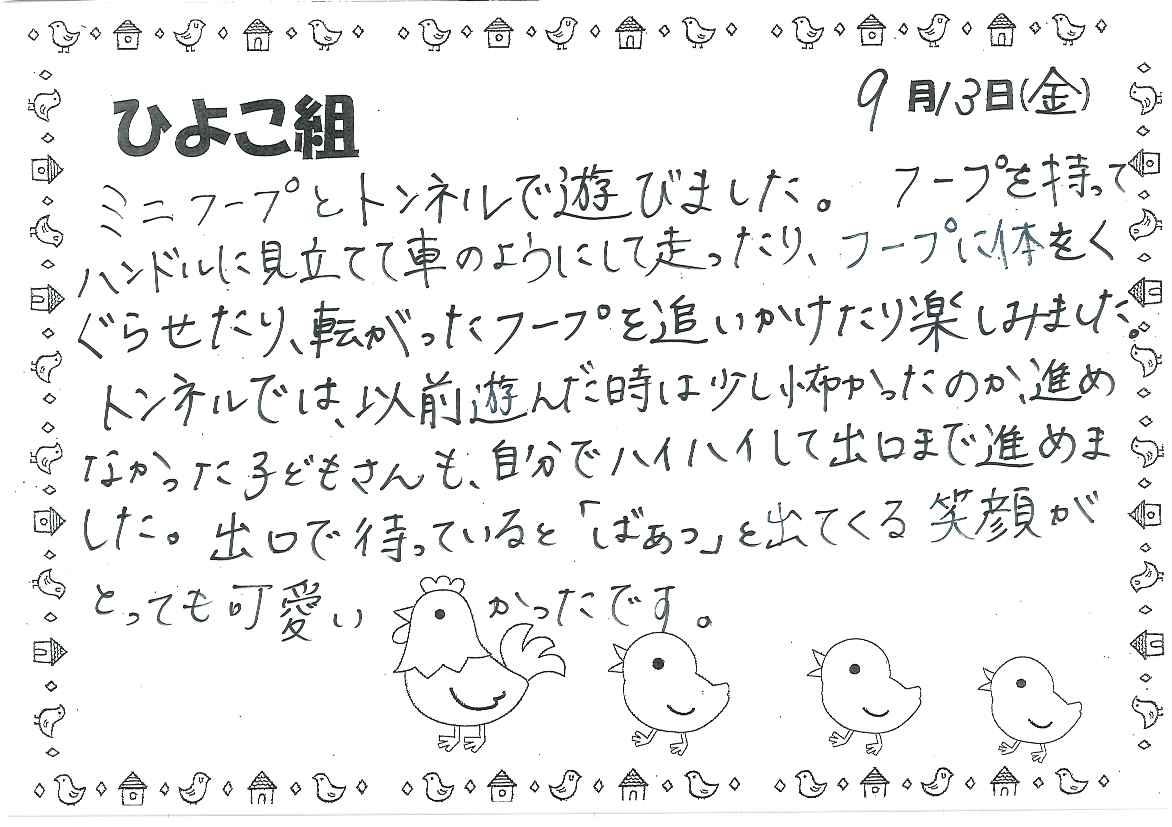 9月13日(金)
ひよこ組
ミニフープとトンネルで遊びました。 フープを持って
ハンドルに見立てて車のようにして走ったり、フープに体をく
ぐらせたり、転がったフープを追いかけたり楽しみました。
トンネルでは、以前遊んだ時は少し怖かったのか、進め
なかった子どもさんも、自分でハイハイして出口まで進めま
した。出口で待っていると「ばあっ」と出てくる笑顔が
とっても可愛いかったです。